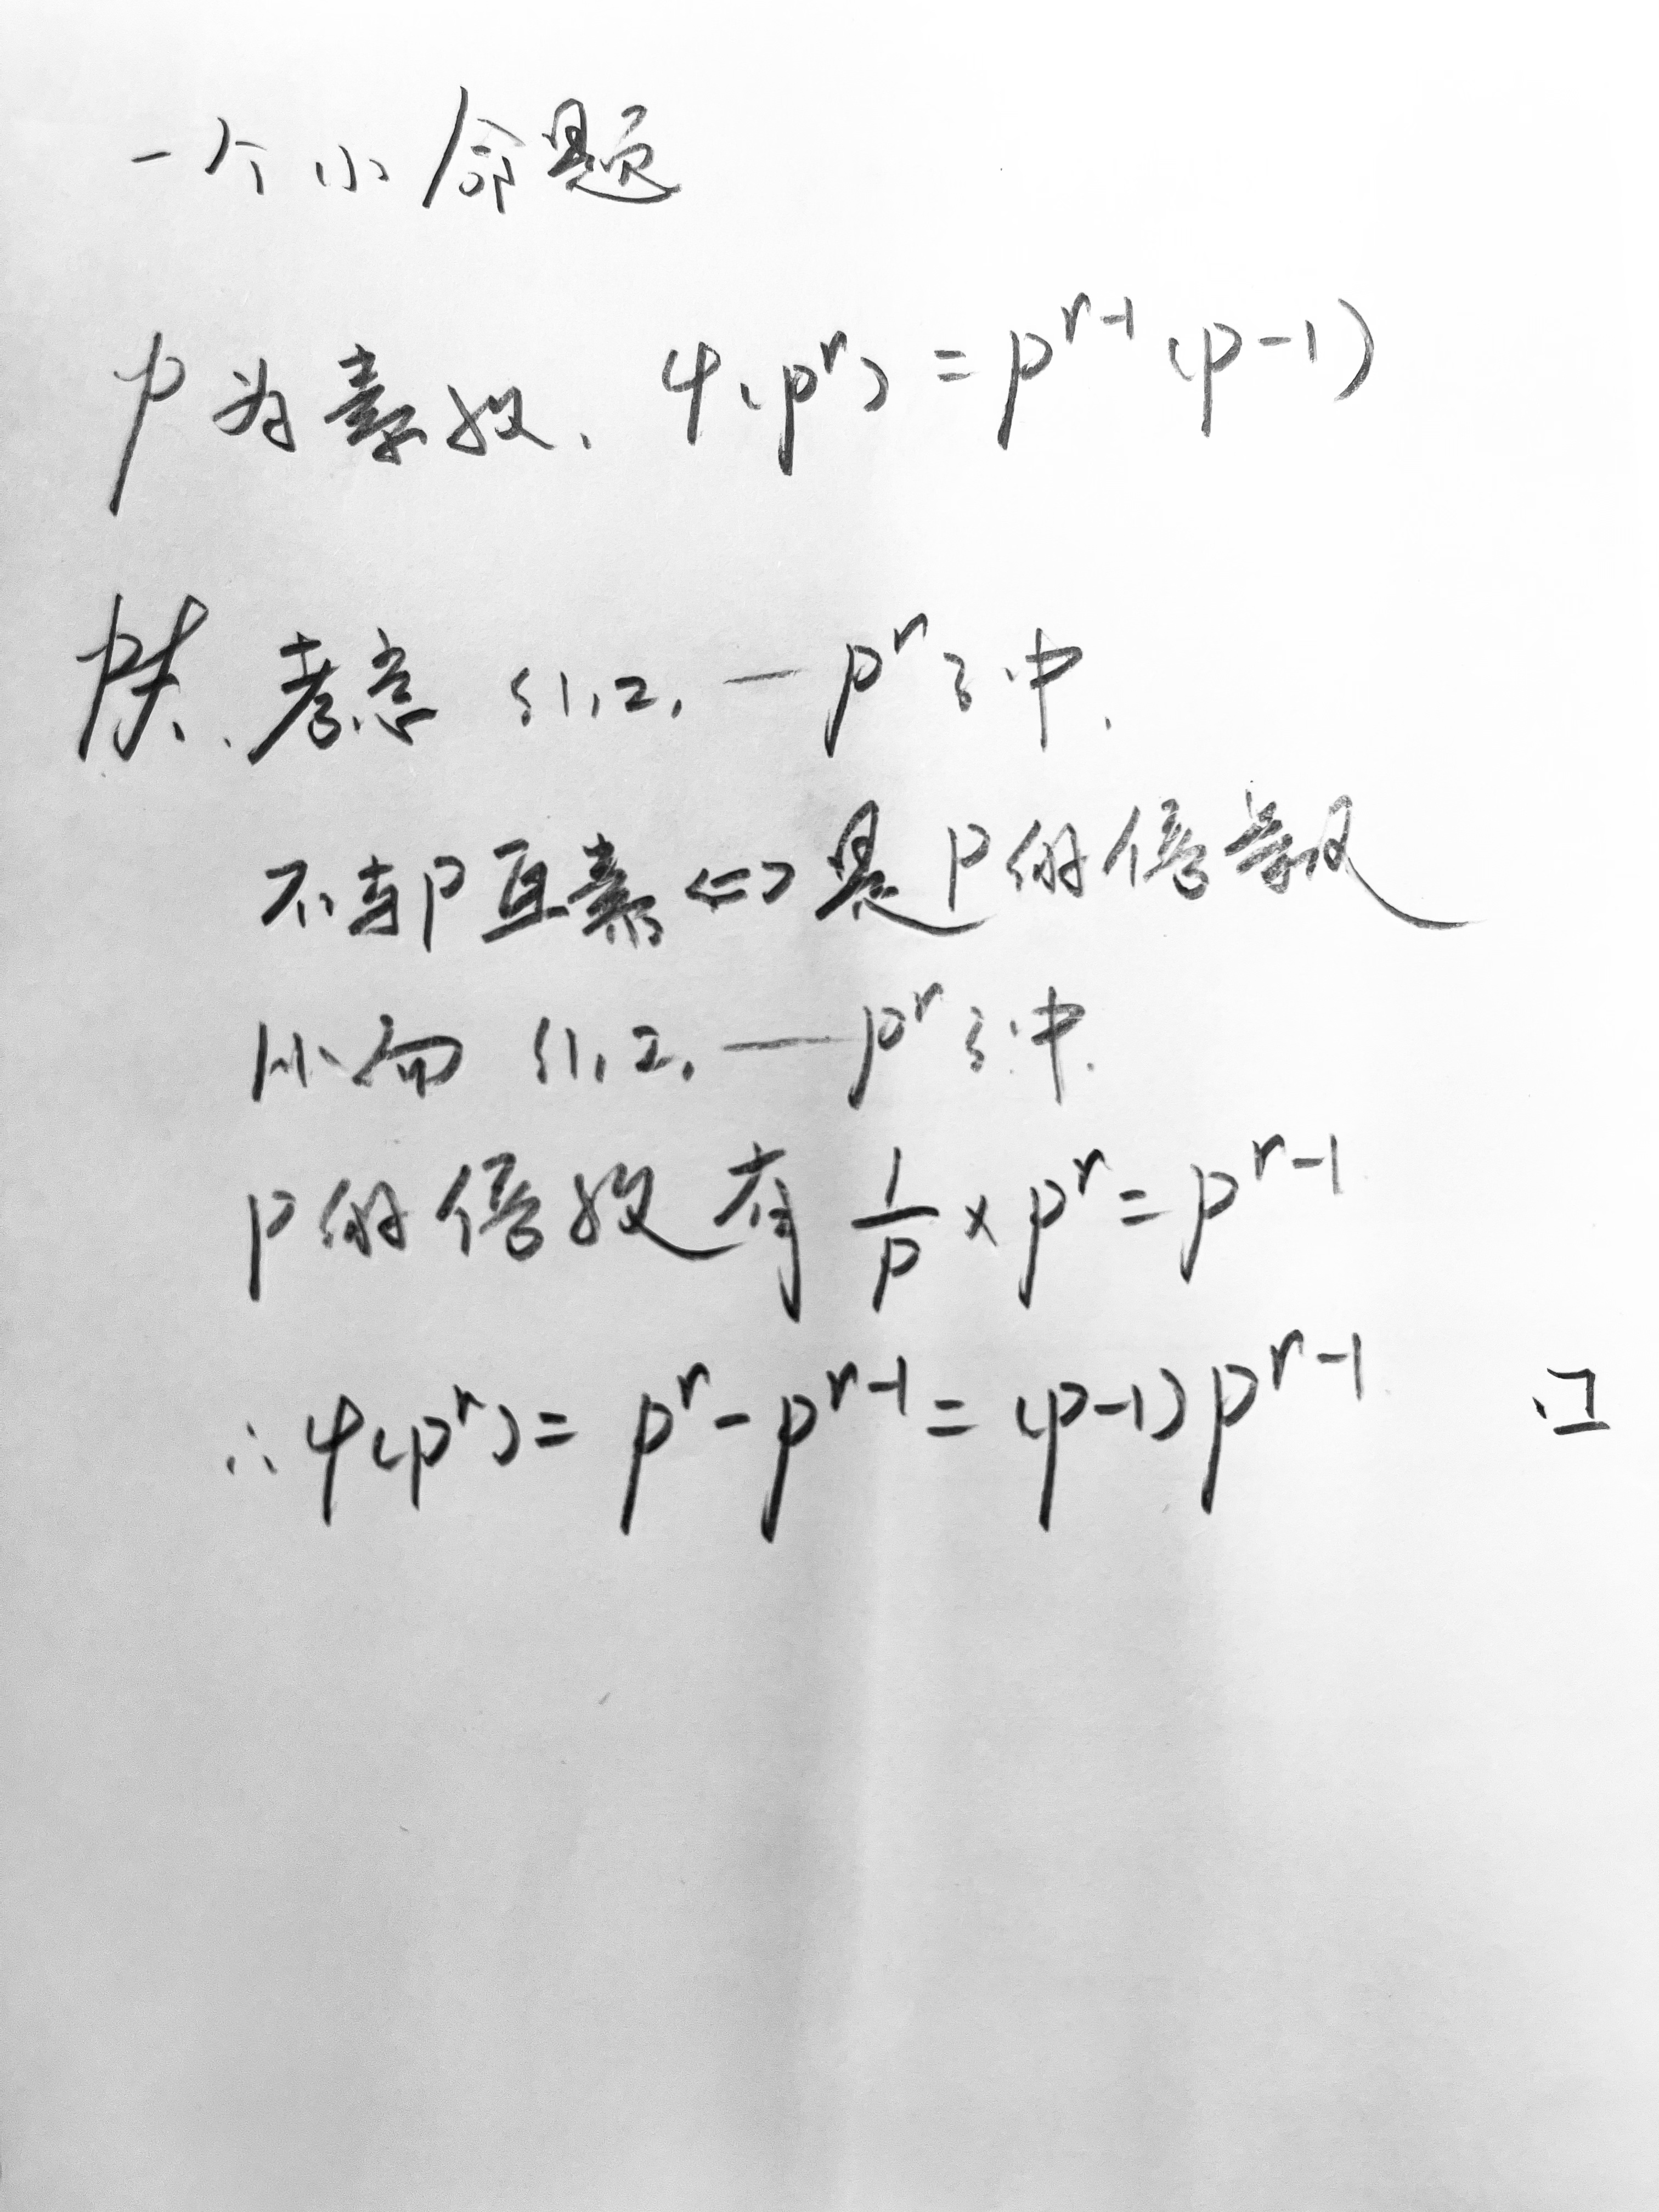 一个小命题
p为素数. φ(p^r) = p^{r-1}(p-1)
pf. 考虑 {1,2, — p^r}中.
不与p互素 <=> 是p的倍数
从而 {1,2, — p^r}中.
p的倍数有 \frac{1}{p} × p^r = p^{r-1}
∴ φ(p^r) = p^r - p^{r-1} = (p-1)p^{r-1} □